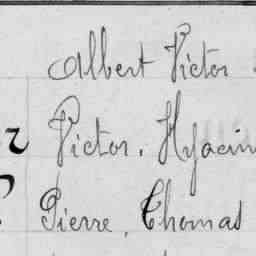 Albert Victor
Victor, Hyacin
Pierre, Thomas